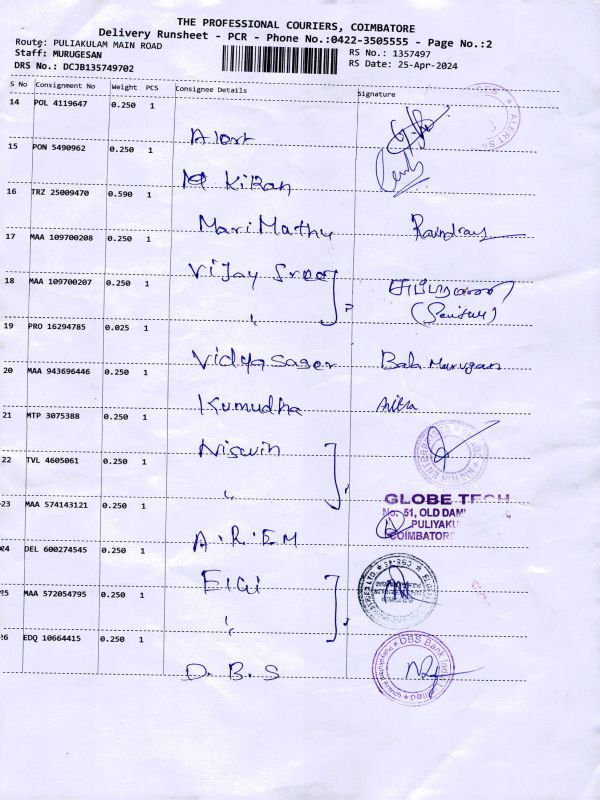 THE PROFESSIONAL COURIERS, COIMBATORE
Delivery Runsheet - PCR - Phone No.:0422-3505555 - Page No.:2
Route: PULIAKULAM MAIN ROAD
RS No.: 1357497
Staff: MURUGESAN
RS Date: 25-Apr-2024
DRS No.: DCJB135749702
S No Consignment No Weight PCS Consignee Details Signature
14 POL 4119647 0.250 1
Alert
15 PON 5490962 0.250 1
Kiran
16 TRZ 25009470 0.590 1
MariMathu
17 MAA 109700208 0.250 1
Vijay Sree
18 MAA 109700207 0.250 1
"
19 PRO 16294785 0.025 1
Vidya Sager Bala Murugan
20 MAA 943696446 0.250 1
Kumudha
21 MTP 3075388 0.250 1
Niswin
22 TVL 4605061 0.250 1
"
GLOBE TECH
23 MAA 574143121 0.250 1
No. 51, OLD
PULIYAKU
COIMBATORE
A.R.E.M
24 DEL 600274545 0.250 1
Elgi
25 MAA 572054795 0.250 1
"
26 EDQ 10664415 0.250 1
D.B.S
DBS Bank India Limited